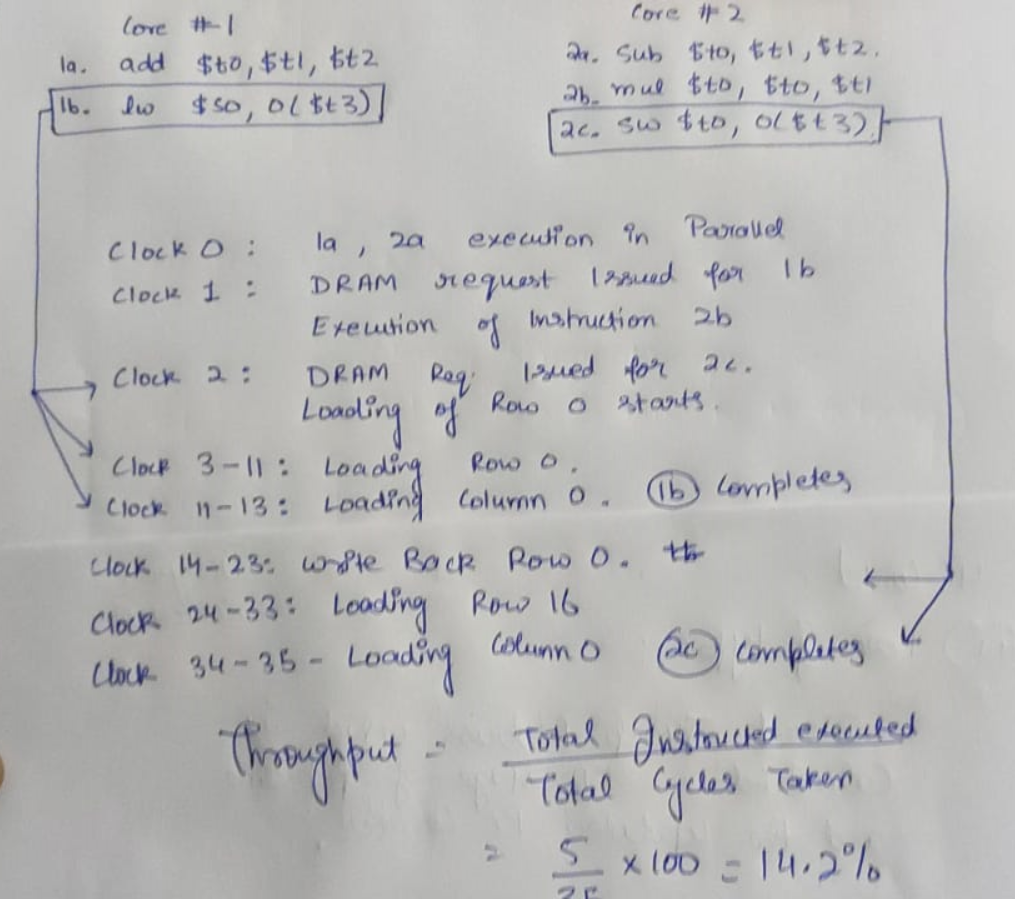 Core #1
1a. add $t0, $t1, $t2
1b. lw $s0, 0($t3)
Core #2
2a. sub $t0, $t1, $t2.
2b. mul $t0, $t0, $t1
2c. sw $t0, 0($t3)
Clock 0 : 1a, 2a execution in Parallel
Clock 1 : DRAM request Issued for 1b
Execution of Instruction 2b
Clock 2 : DRAM Req. Issued for 2c.
Loading of Row 0 starts.
Clock 3-11 : Loading Row 0.
Clock 11-13 : Loading Column 0. 1b completes
Clock 14-23: write Back Row 0.
Clock 24-33: Loading Row 16
Clock 34-35 - Loading Column 0 2c completes
Throughput = Total Instructed executed
Total Cycles Taken
= 5 × 100 = 14.2%